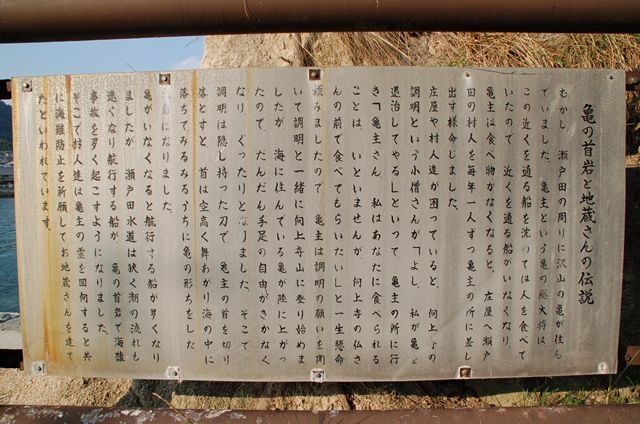 亀の首岩と地蔵さんの伝説
むかし 瀬戸田の周りに沢山の亀が住ん
でいました。亀主という亀の総大将は
この近くを通る船を沈めては人を食べて
いたので 近くを通る船がいなくなり
亀主は食べ物がなくなると、庄屋へ瀬戸
田の村人を毎年一人ずつ亀主の所に差し
出す様命じました。
庄屋や村人達が困っていると、向上寺の
調明という小僧さんが「よし、私が亀を
退治してやる」といって 亀主の所に行
き「亀主さん、私はあなたに食べられる
ことは いといませんが 向上寺の仏さ
んの前で食べてもらいたい」と一生懸命
頼みましたので 亀主は調明の願いを聞
いて調明と一緒に向上寺山に登り始めま
したが 海に住んでいる亀が陸に上がっ
たので、だんだん手足の自由がきかなく
なり ぐったりとなりました。そこで
調明は隠し持った刀で 亀主の首を切り
落とすと 首は空高く舞あがり海の中に
落ちてみるみるうちに亀の形をした
岩になりました。
亀がいなくなると航行する船が多くなり
ましたが 瀬戸田水道は狭く潮の流れも
速くなり航行する船が 亀の首岩で海難
事故を多く起こすようになりました。
そこで村人達は亀主の霊を回向すると共
に海難防止を祈願してお地蔵さんを建て
たといわれています。